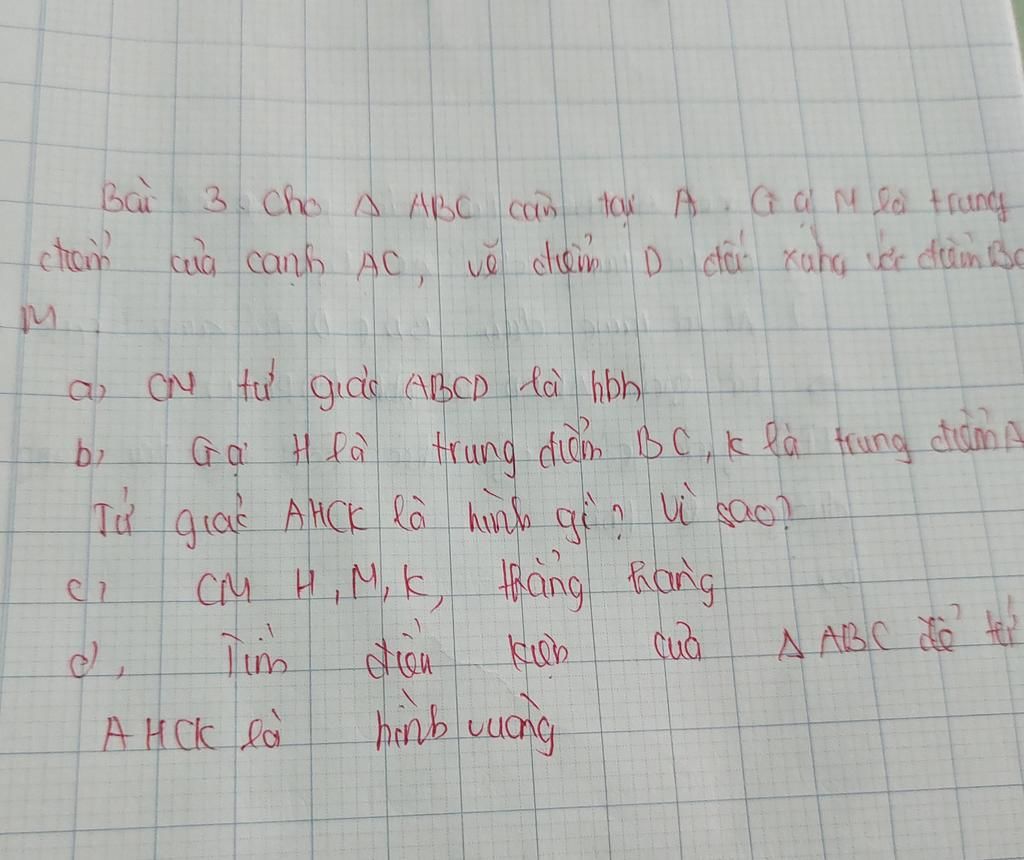 Bài 3. Cho Δ ABC cân tại A. Gọi M là trung
điểm của cạnh AC, vẽ điểm D đối xứng với điểm B
M.
a, CM tứ giác ABCD là hbh
b, Gọi H là trung điểm BC, K là trung điểm A
Tứ giác AHCK là hình gì? Vì sao?
c, CM H, M, K, thẳng hàng
d, Tìm điều kiện của Δ ABC để tứ
AHCK là hình vuông